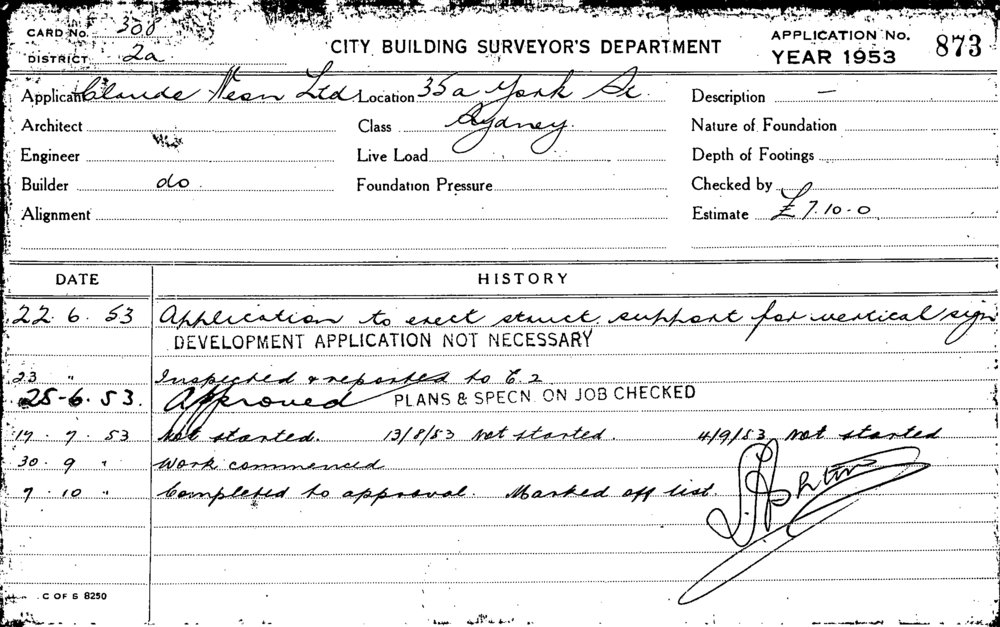 CARD No. 308
DISTRICT 2a
CITY BUILDING SURVEYOR'S DEPARTMENT
APPLICATION No. 873
YEAR 1953
Applicant Claude Neon Ltd Location 35a York St. Description —
Architect Class Sydney Nature of Foundation
Engineer Live Load Depth of Footings
Builder do Foundation Pressure Checked by
Alignment Estimate £7.10.0
DATE HISTORY
22.6.53 Application to erect struct. support for vertical sign
DEVELOPMENT APPLICATION NOT NECESSARY
23 " Inspected & reported to E.2
25-6.53. Approved PLANS & SPECN. ON JOB CHECKED
17.7.53 Not started. 13/8/53 Not started. 4/9/53 Not started
30.9 " Work commenced
7.10 " Completed to approval. Marked off list.
C OF S 8250